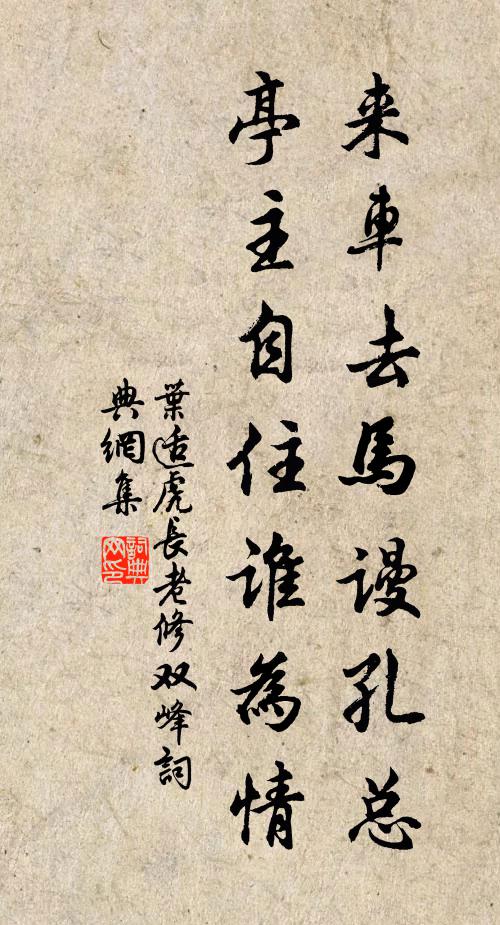 来車去馬謾孔总
亭主自住誰為情
葉适虎長老修双峰詞
典網集
詞典网印